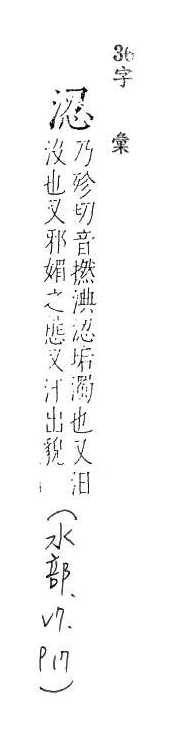 36字彙
涊
乃殄切音撚淟涊垢濁也又汩
沒也又邪媚之態又汗出貌
(水部、V7. P17)